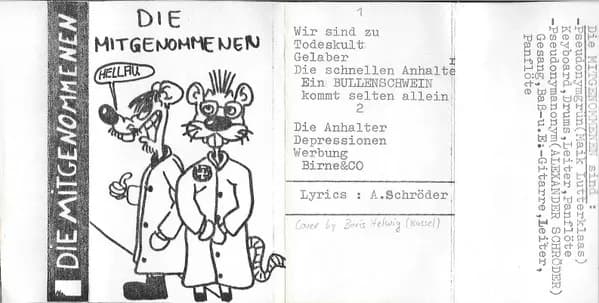 DIE MITGENOMMENEN
DIE
MITGENOMMENEN
HELLAU.
1
Wir sind zu
Todeskult
Gelaber
Die schnellen Anhalter
Ein BULLENSCHWEIN
kommt selten allein
2
Die Anhalter
Depressionen
Werbung
Birne&CO
Lyrics : A.Schröder
Cover by Boris Helwig (Kassel)
Die MITGENOMMENEN sind :
-Pseudonymgrün(Maik Lutterklaas)
Keyboard,Drums,Leiter,Panflöte
-Pseudonymanonym(ALEXANDER SCHRÖDER)
Gesang,Baß-u.E;-Gitarre,Leiter,
Panflöte